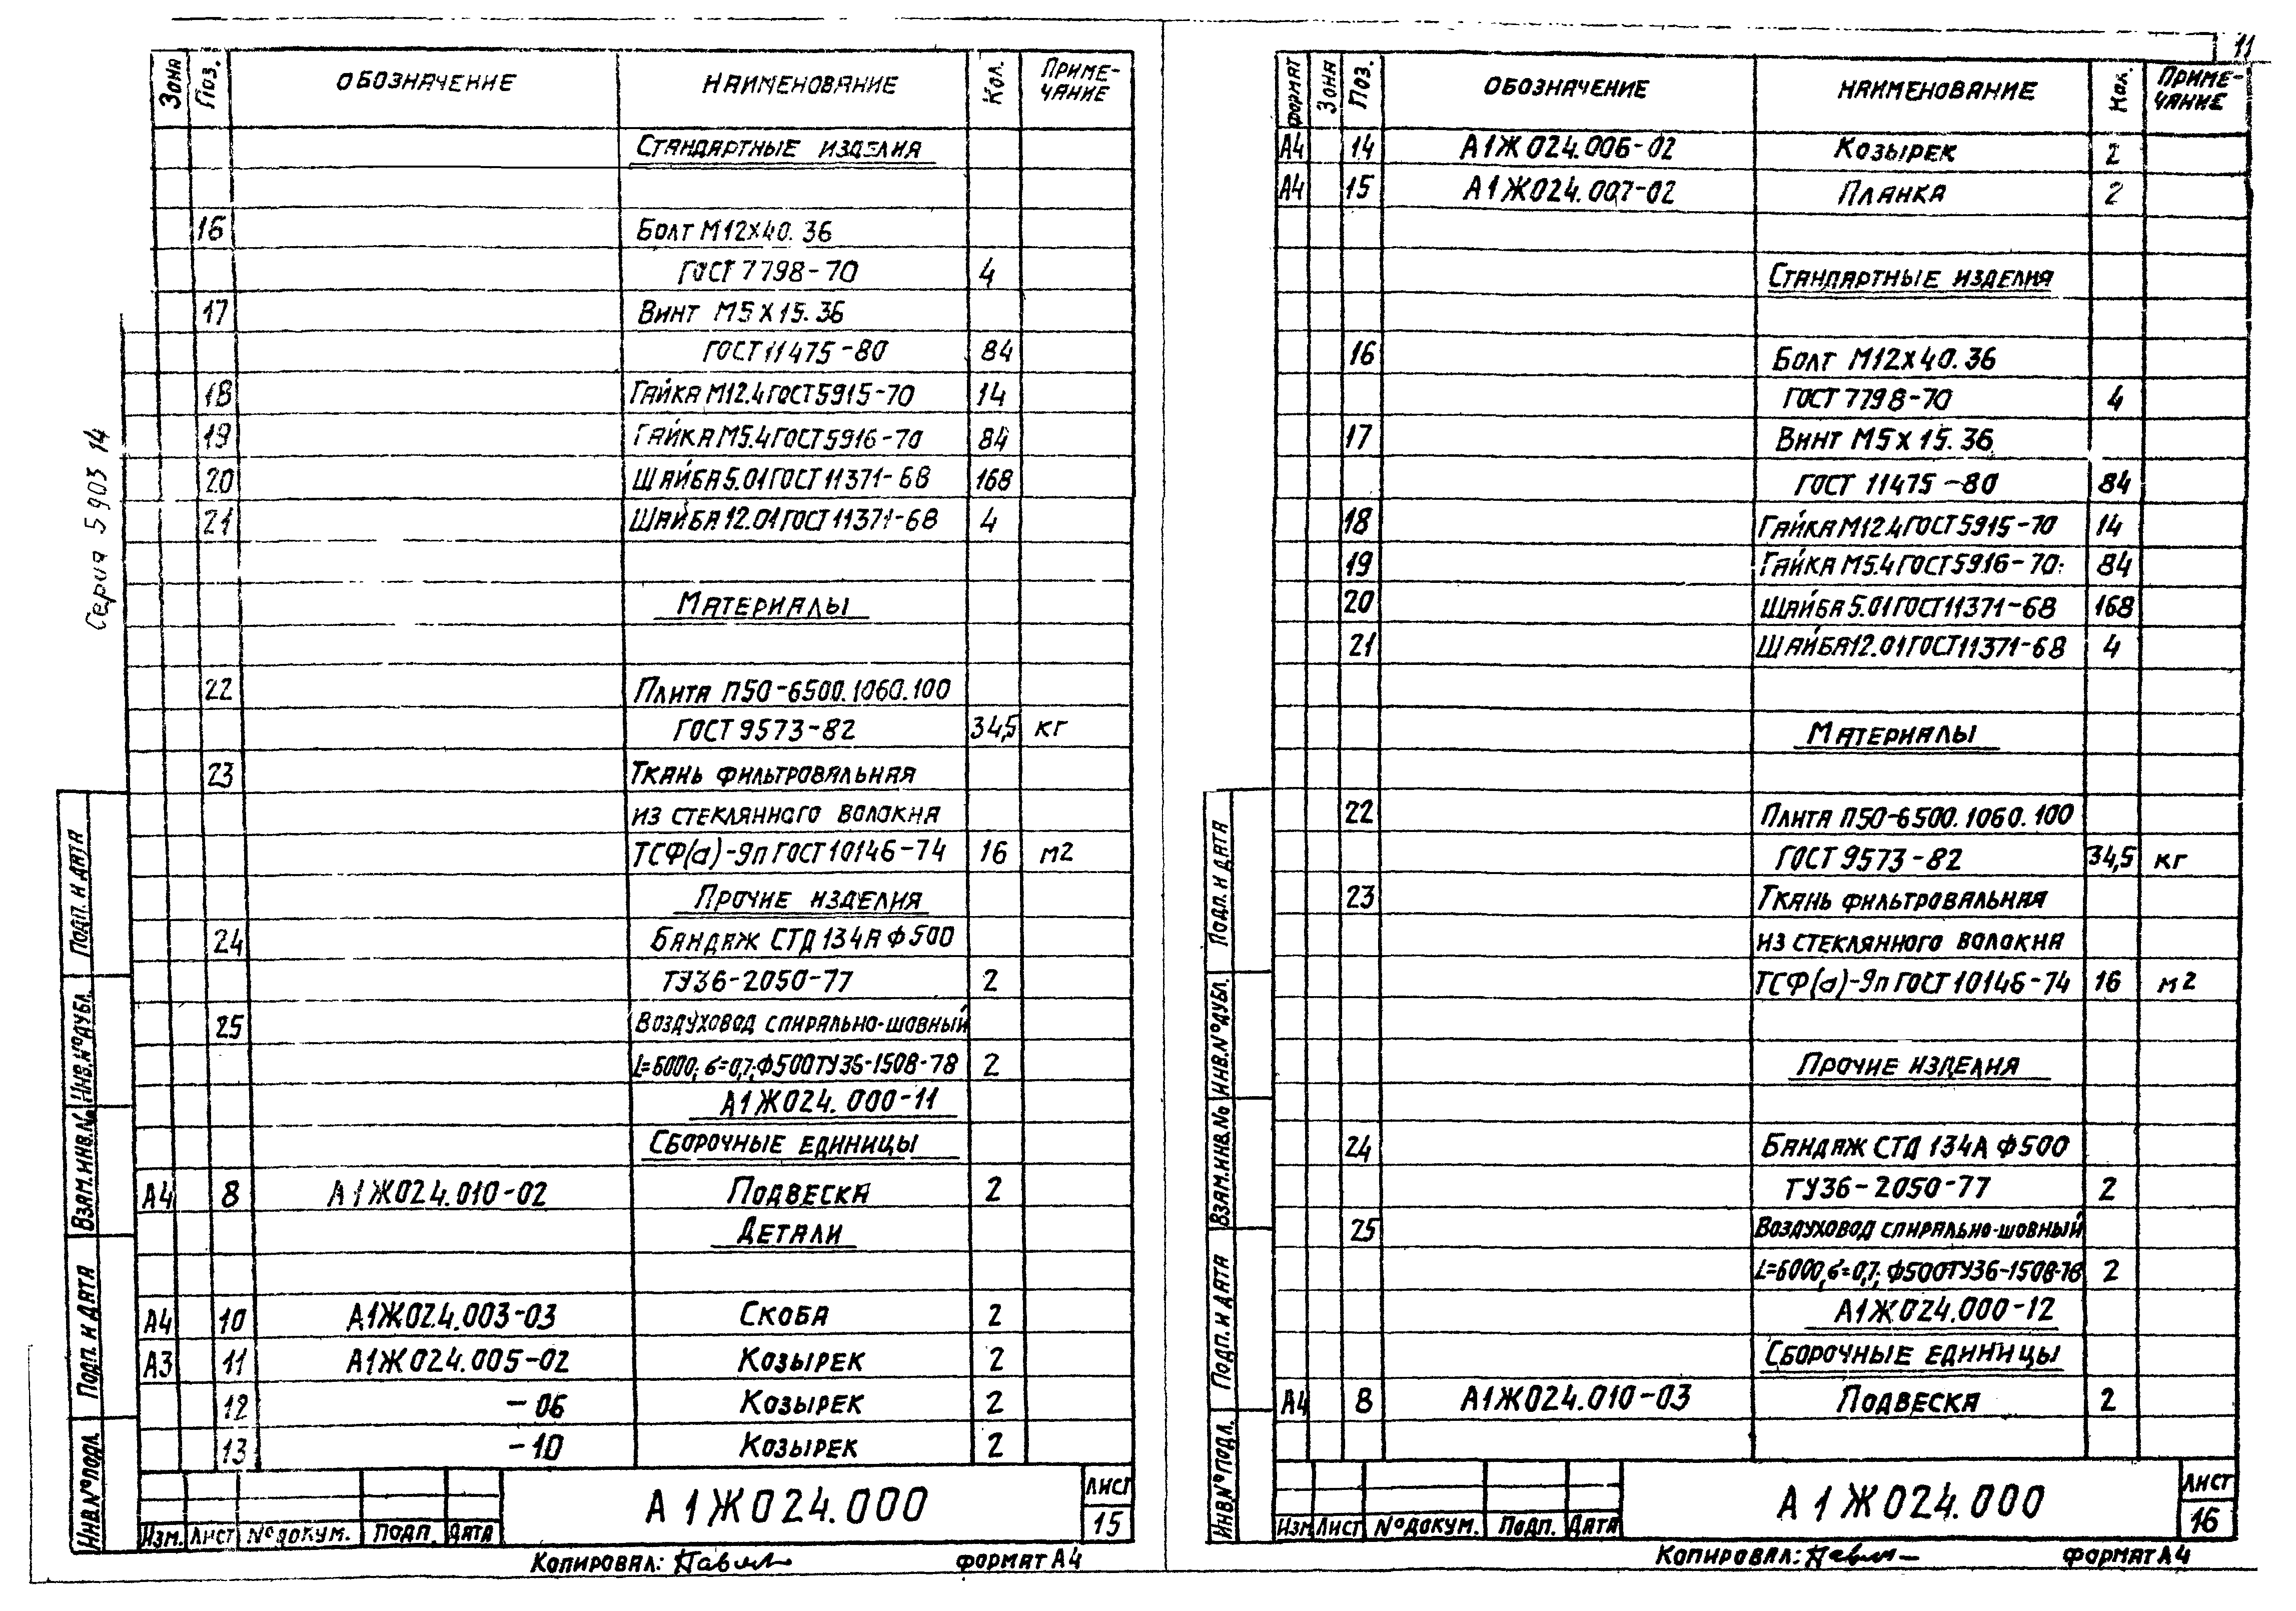 11
Серия 5 903 14
Зона Поз. Обозначение Наименование Кол. Примечание
Стандартные изделия
16 Болт М12х40.36
ГОСТ 7798-70 4
17 Винт М5х15.36
ГОСТ 11475-80 84
18 Гайка М12.4 ГОСТ 5915-70 14
19 Гайка М5.4 ГОСТ 5916-70 84
20 Шайба 5.01 ГОСТ 11371-68 168
21 Шайба 12.01 ГОСТ 11371-68 4
Материалы
22 Плита П50-6500.1060.100
ГОСТ 9573-82 34,5 кг
23 Ткань фильтровальная
из стеклянного волокна
ТСФ(а)-9п ГОСТ 10146-74 16 м2
Прочие изделия
24 Бандаж СТД 134А Ф500
ТУ36-2050-77 2
25 Воздуховод спирально-шовный
L=6000; б=0,7; Ф500 ТУ36-1508-78 2
А1Ж024.000-11
Сборочные единицы
А4 8 А1Ж024.010-02 Подвеска 2
Детали
А4 10 А1Ж024.003-03 Скоба 2
А3 11 А1Ж024.005-02 Козырек 2
12 -06 Козырек 2
13 -10 Козырек 2
Подп. и дата
Инв.№ дубл.
Взам.инв.№
Подп. и дата
Инв.№ подл.
Изм. Лист № докум. Подп. Дата
А1Ж024.000
Лист
15
Копировал:
Формат А4
Формат Зона Поз. Обозначение Наименование Кол. Примечание
А4 14 А1Ж024.006-02 Козырек 2
А4 15 А1Ж024.007-02 Планка 2
Стандартные изделия
16 Болт М12х40.36
ГОСТ 7798-70 4
17 Винт М5х15.36
ГОСТ 11475-80 84
18 Гайка М12.4 ГОСТ 5915-70 14
19 Гайка М5.4 ГОСТ 5916-70 84
20 Шайба 5.01 ГОСТ 11371-68 168
21 Шайба 12.01 ГОСТ 11371-68 4
Материалы
22 Плита П50-6500.1060.100
ГОСТ 9573-82 34,5 кг
23 Ткань фильтровальная
из стеклянного волокна
ТСФ(а)-9п ГОСТ 10146-74 16 м2
Прочие изделия
24 Бандаж СТД 134А Ф500
ТУ36-2050-77 2
25 Воздуховод спирально-шовный
L=6000, б=0,7; Ф500 ТУ36-1508-78 2
А1Ж024.000-12
Сборочные единицы
А4 8 А1Ж024.010-03 Подвеска 2
Подп. и дата
Инв.№ дубл.
Взам.инв.№
Подп. и дата
Инв.№ подл.
Изм Лист № докум. Подп. Дата
А1Ж024.000
Лист
16
Копировал:
Формат А4